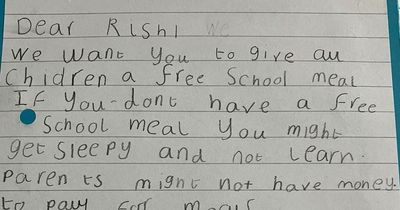 Dear Rishi we
we want you to give au
Chidren a free School meal
If you-dont have a free
School meal you might
get sleepy and not learn.
Parents might not have money.
to pay for meals